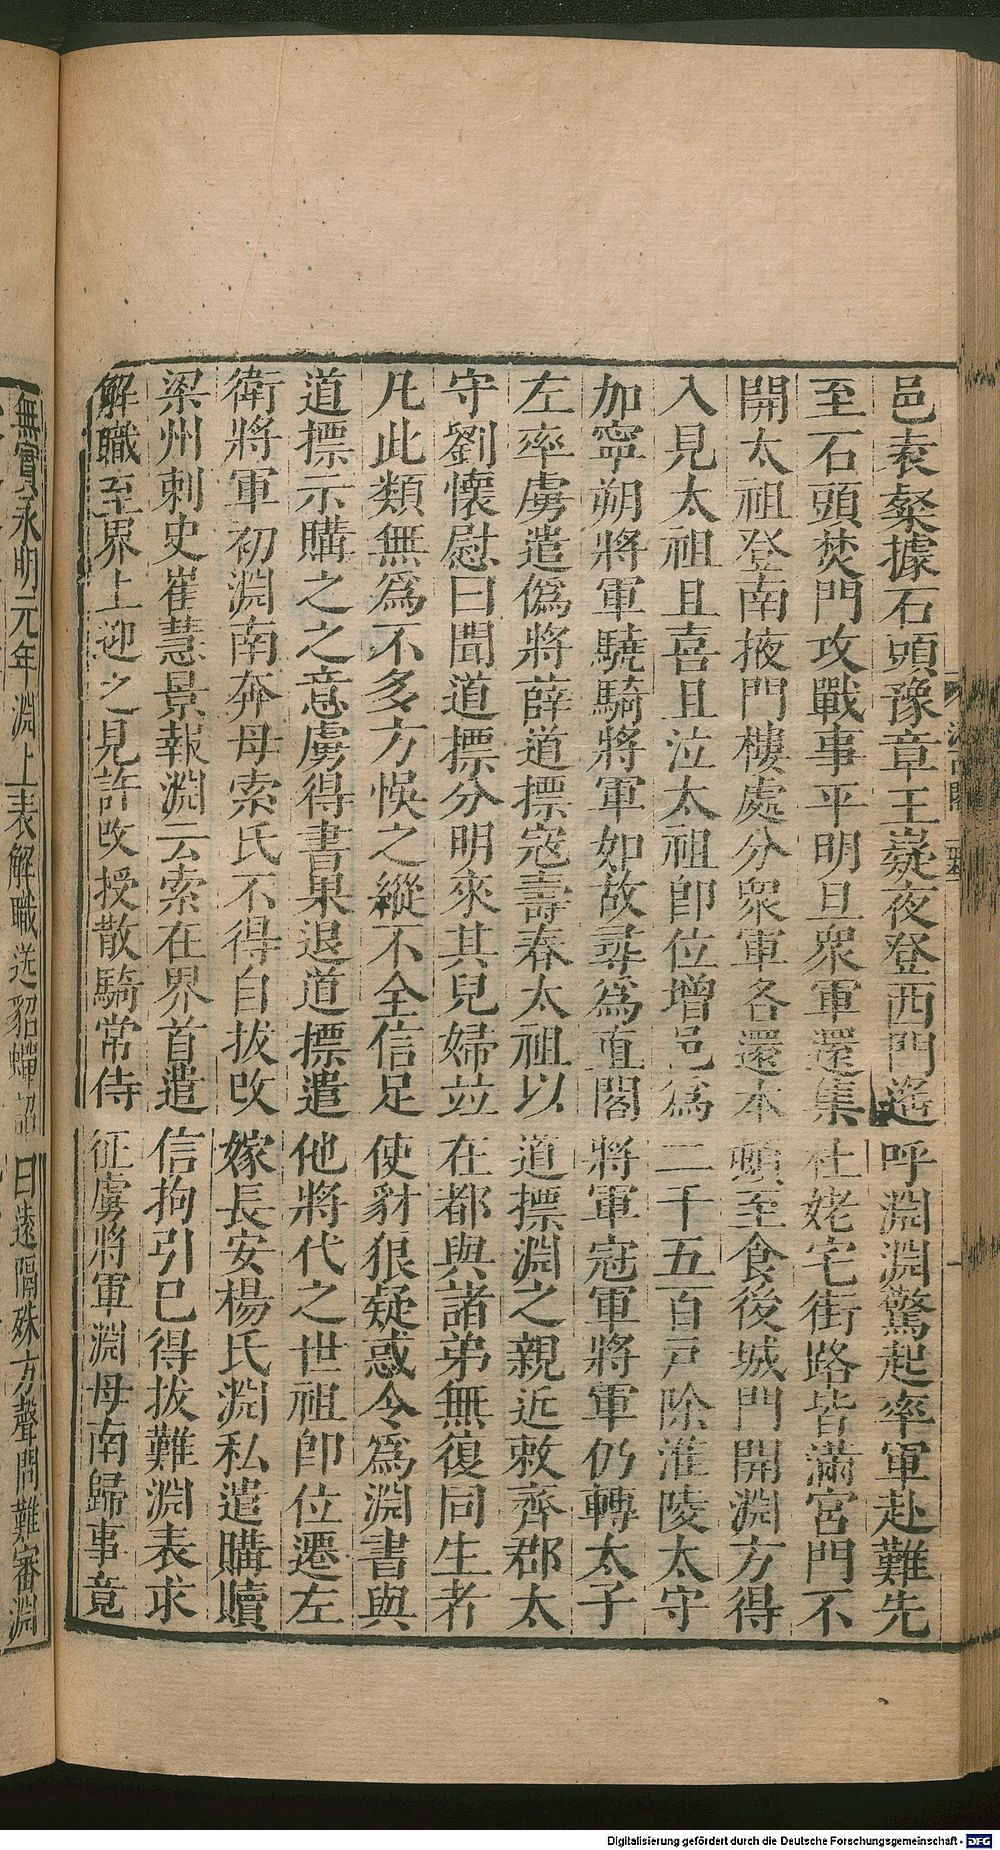 邑袁粲據石頭豫章王嶷夜登西門遙呼淵淵驚起率軍赴難先
至石頭焚門攻戰事平明旦衆軍還集杜姥宅街路皆滿宮門不
開太祖登南掖門樓處分衆軍各還本頓至食後城門開淵方得
入見太祖且喜且泣太祖卽位增邑爲二千五百戸除淮陵太守
加寧朔將軍驍騎將軍如故尋爲直閤將軍冠軍將軍仍轉太子
左率虜遣僞將薛道摽寇壽春太祖以道摽淵之親近敕齊郡太
守劉懷慰曰聞道摽分明來其兒婦竝在都與諸弟無復同生者
凡此類無爲不多方悞之縱不全信足使豺狼疑惑令爲淵書與
道摽示購之之意虜得書果退道摽遣他將代之世祖卽位遷左
衛將軍初淵南奔母索氏不得自拔改嫁長安楊氏淵私遣購贖
梁州刺史崔慧景報淵云索在界首遣信拘引已得拔難淵表求
解職至界上迎之見許改授散騎常侍征虜將軍淵母南歸事竟
無實永明元年淵上表解職送貂蟬詔曰遠隔殊方聲問難審淵
Digitalisierung gefördert durch die Deutsche Forschungsgemeinschaft - DFG